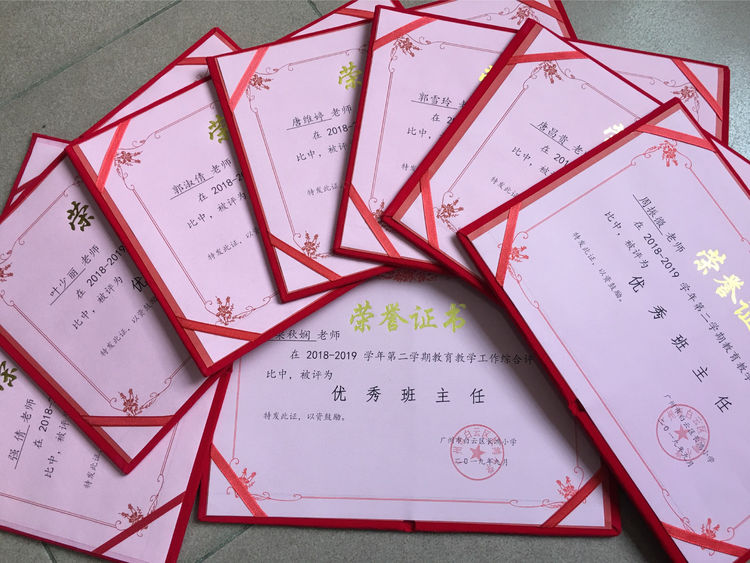 荣
唐维婷 老师
在 2018-2
比中，被评
特发此证
郭雪玲 老
在 201
比中，被
特发此证
老师
在 2018-2
比中，被评为
特发此证，以
郭淑倩 老师
在 2018-20
比中，被评为
特发此证，以资
荣
叶少丽 老师
在 2018-2
比中，被评为
优
特发此证，以资鼓
荣
强 倩 老师
在 2
比中，被评为
特发此证，以资鼓
荣誉证书
秋娴 老师
在 2018-2019 学年第二学期教育教学工作综合评
比中，被评为
优 秀 班 主 任
特发此证，以资鼓励。
广州市白云区 小学
二〇一九年九月
荣誉证
周振 老师
在 2018-2019 学年第二学期教育教学
比中，被评为
优 秀 班 主 任
特发此证，以资鼓励。
广州市白云区 小学
二〇一九年九月